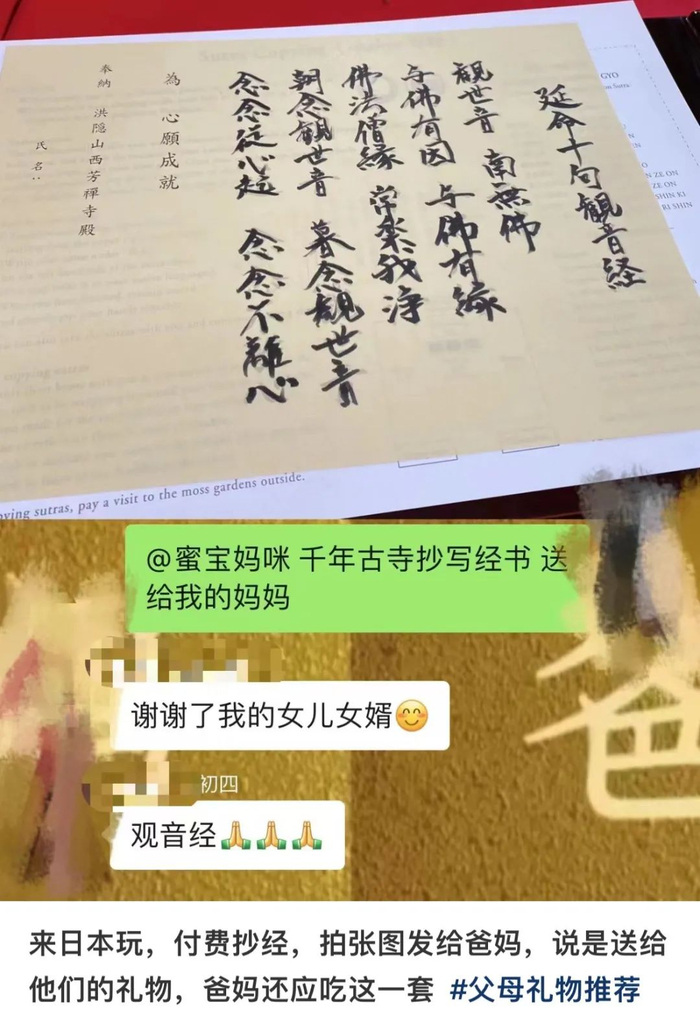 延命十句観音経
観世音 南無佛
与佛有因 与佛有縁
佛法僧縁 常楽我浄
朝念観世音 暮念観世音
念念従心起 念念不離心
為 心願成就
奉納 洪隠山西芳禪寺殿
氏名：
GYO
Sutra
N ZE ON
ZE ON
SHIN KI
RI SHIN
sutras, pay a visit to the moss gardens outside.
@蜜宝妈咪 千年古寺抄写经书 送
给我的妈妈
谢谢了我的女儿女婿😊
初四
观音经🙏🙏🙏
爸
来日本玩，付费抄经，拍张图发给爸妈，说是送给
他们的礼物，爸妈还应吃这一套 #父母礼物推荐